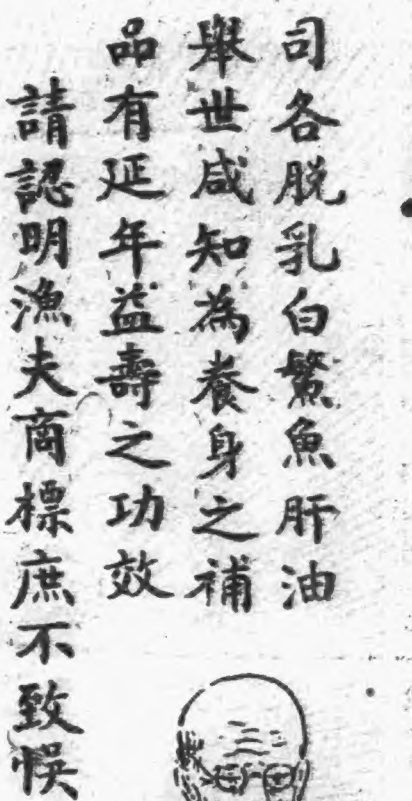 司各脱乳白鰵魚肝油
舉世咸知為養身之補
品有延年益壽之功效
請認明漁夫商標庶不致悞